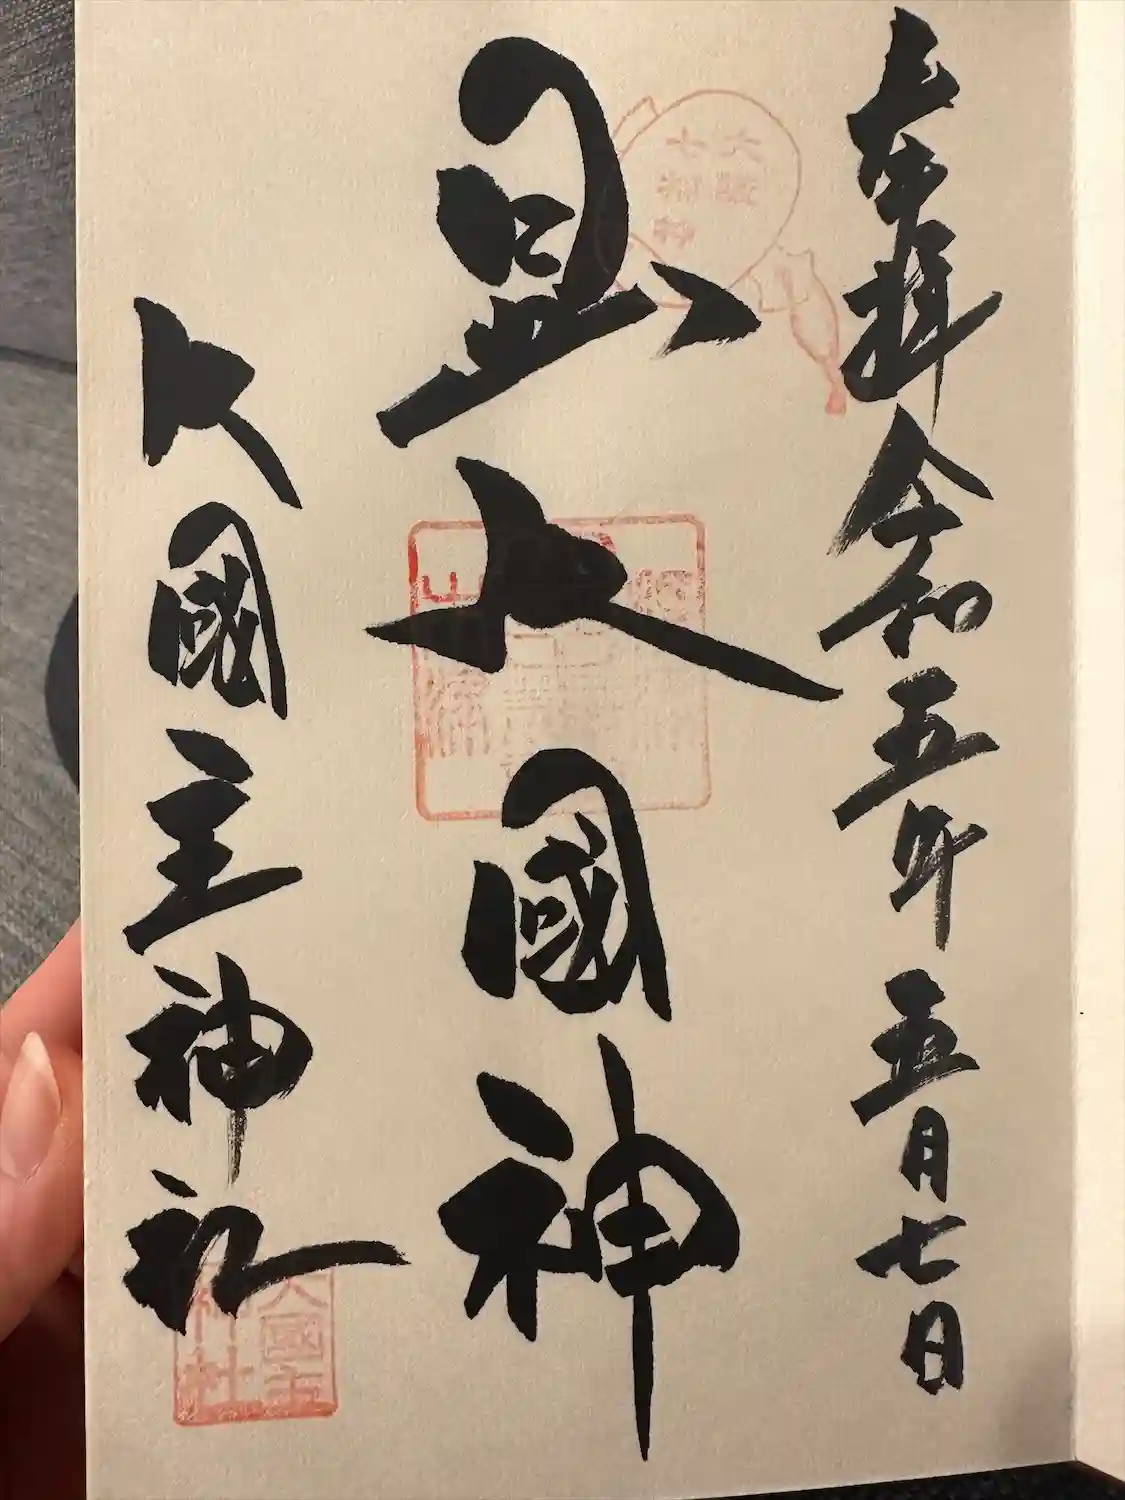 奉拝 令和五年 五月七日
大阪
七福神
日出大國神
大國主神社
大國主
神社